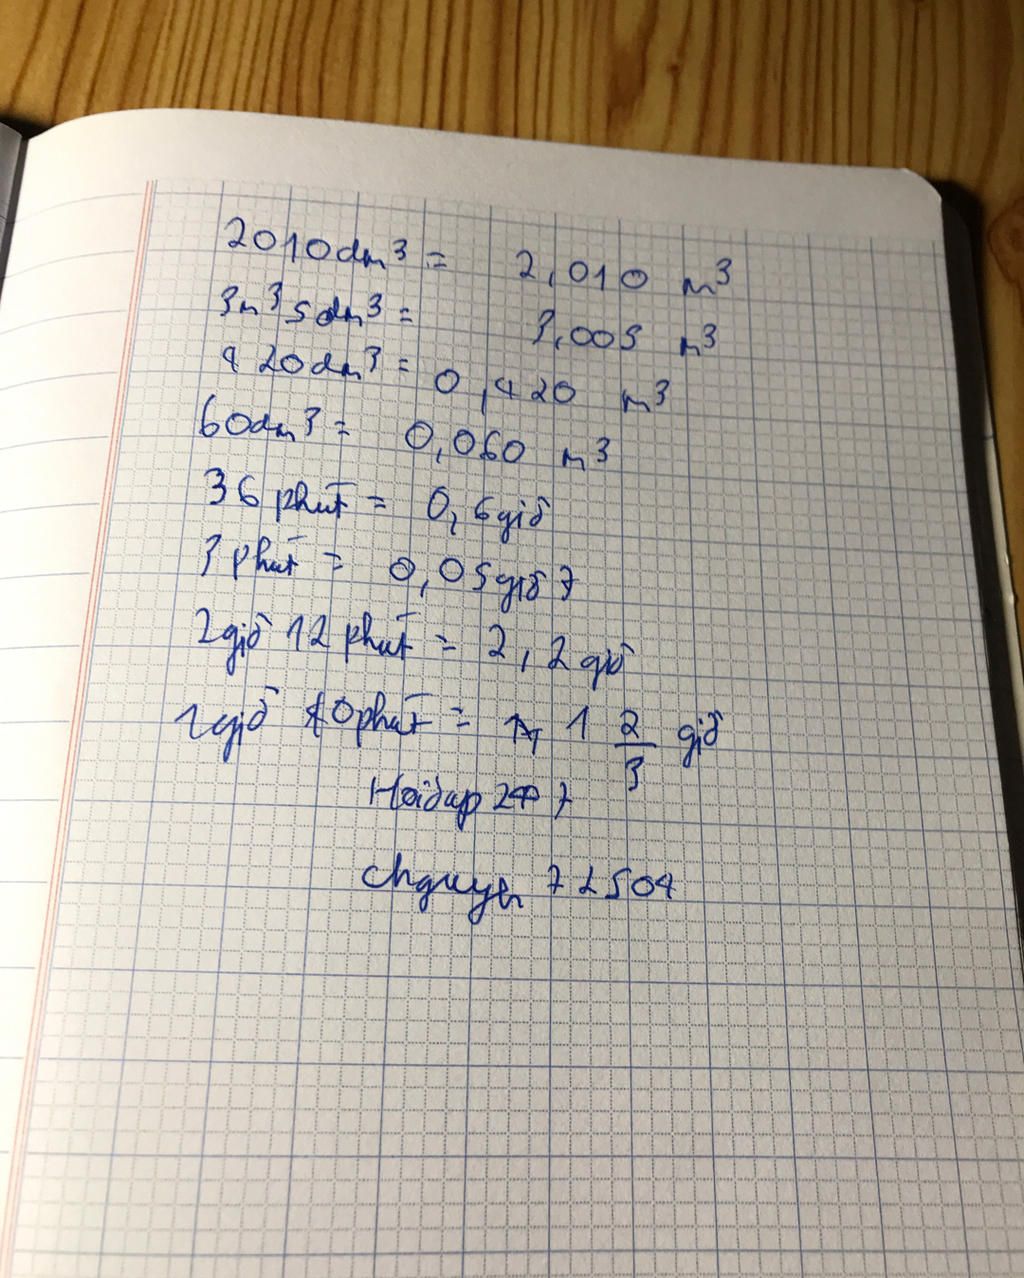 2010dm³ = 2,010 m³
3m³ 5dm³ = 3,005 m³
420dm³ = 0,420 m³
60dm³ = 0,060 m³
36 phút = 0,6 giờ
3 phút = 0,05 giờ 7
2giờ 12 phút = 2,2 giờ
1giờ 40phút = 1 2/3 giờ
Hoidap247
chguyen 72504